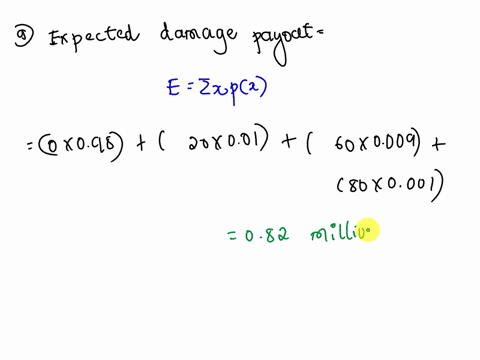 a) Expected damage payout =
E = Σxp(x)
= (0 x 0.98) + ( 20 x 0.01) + ( 60 x 0.009) +
(80 x 0.001)
= 0.82 millio